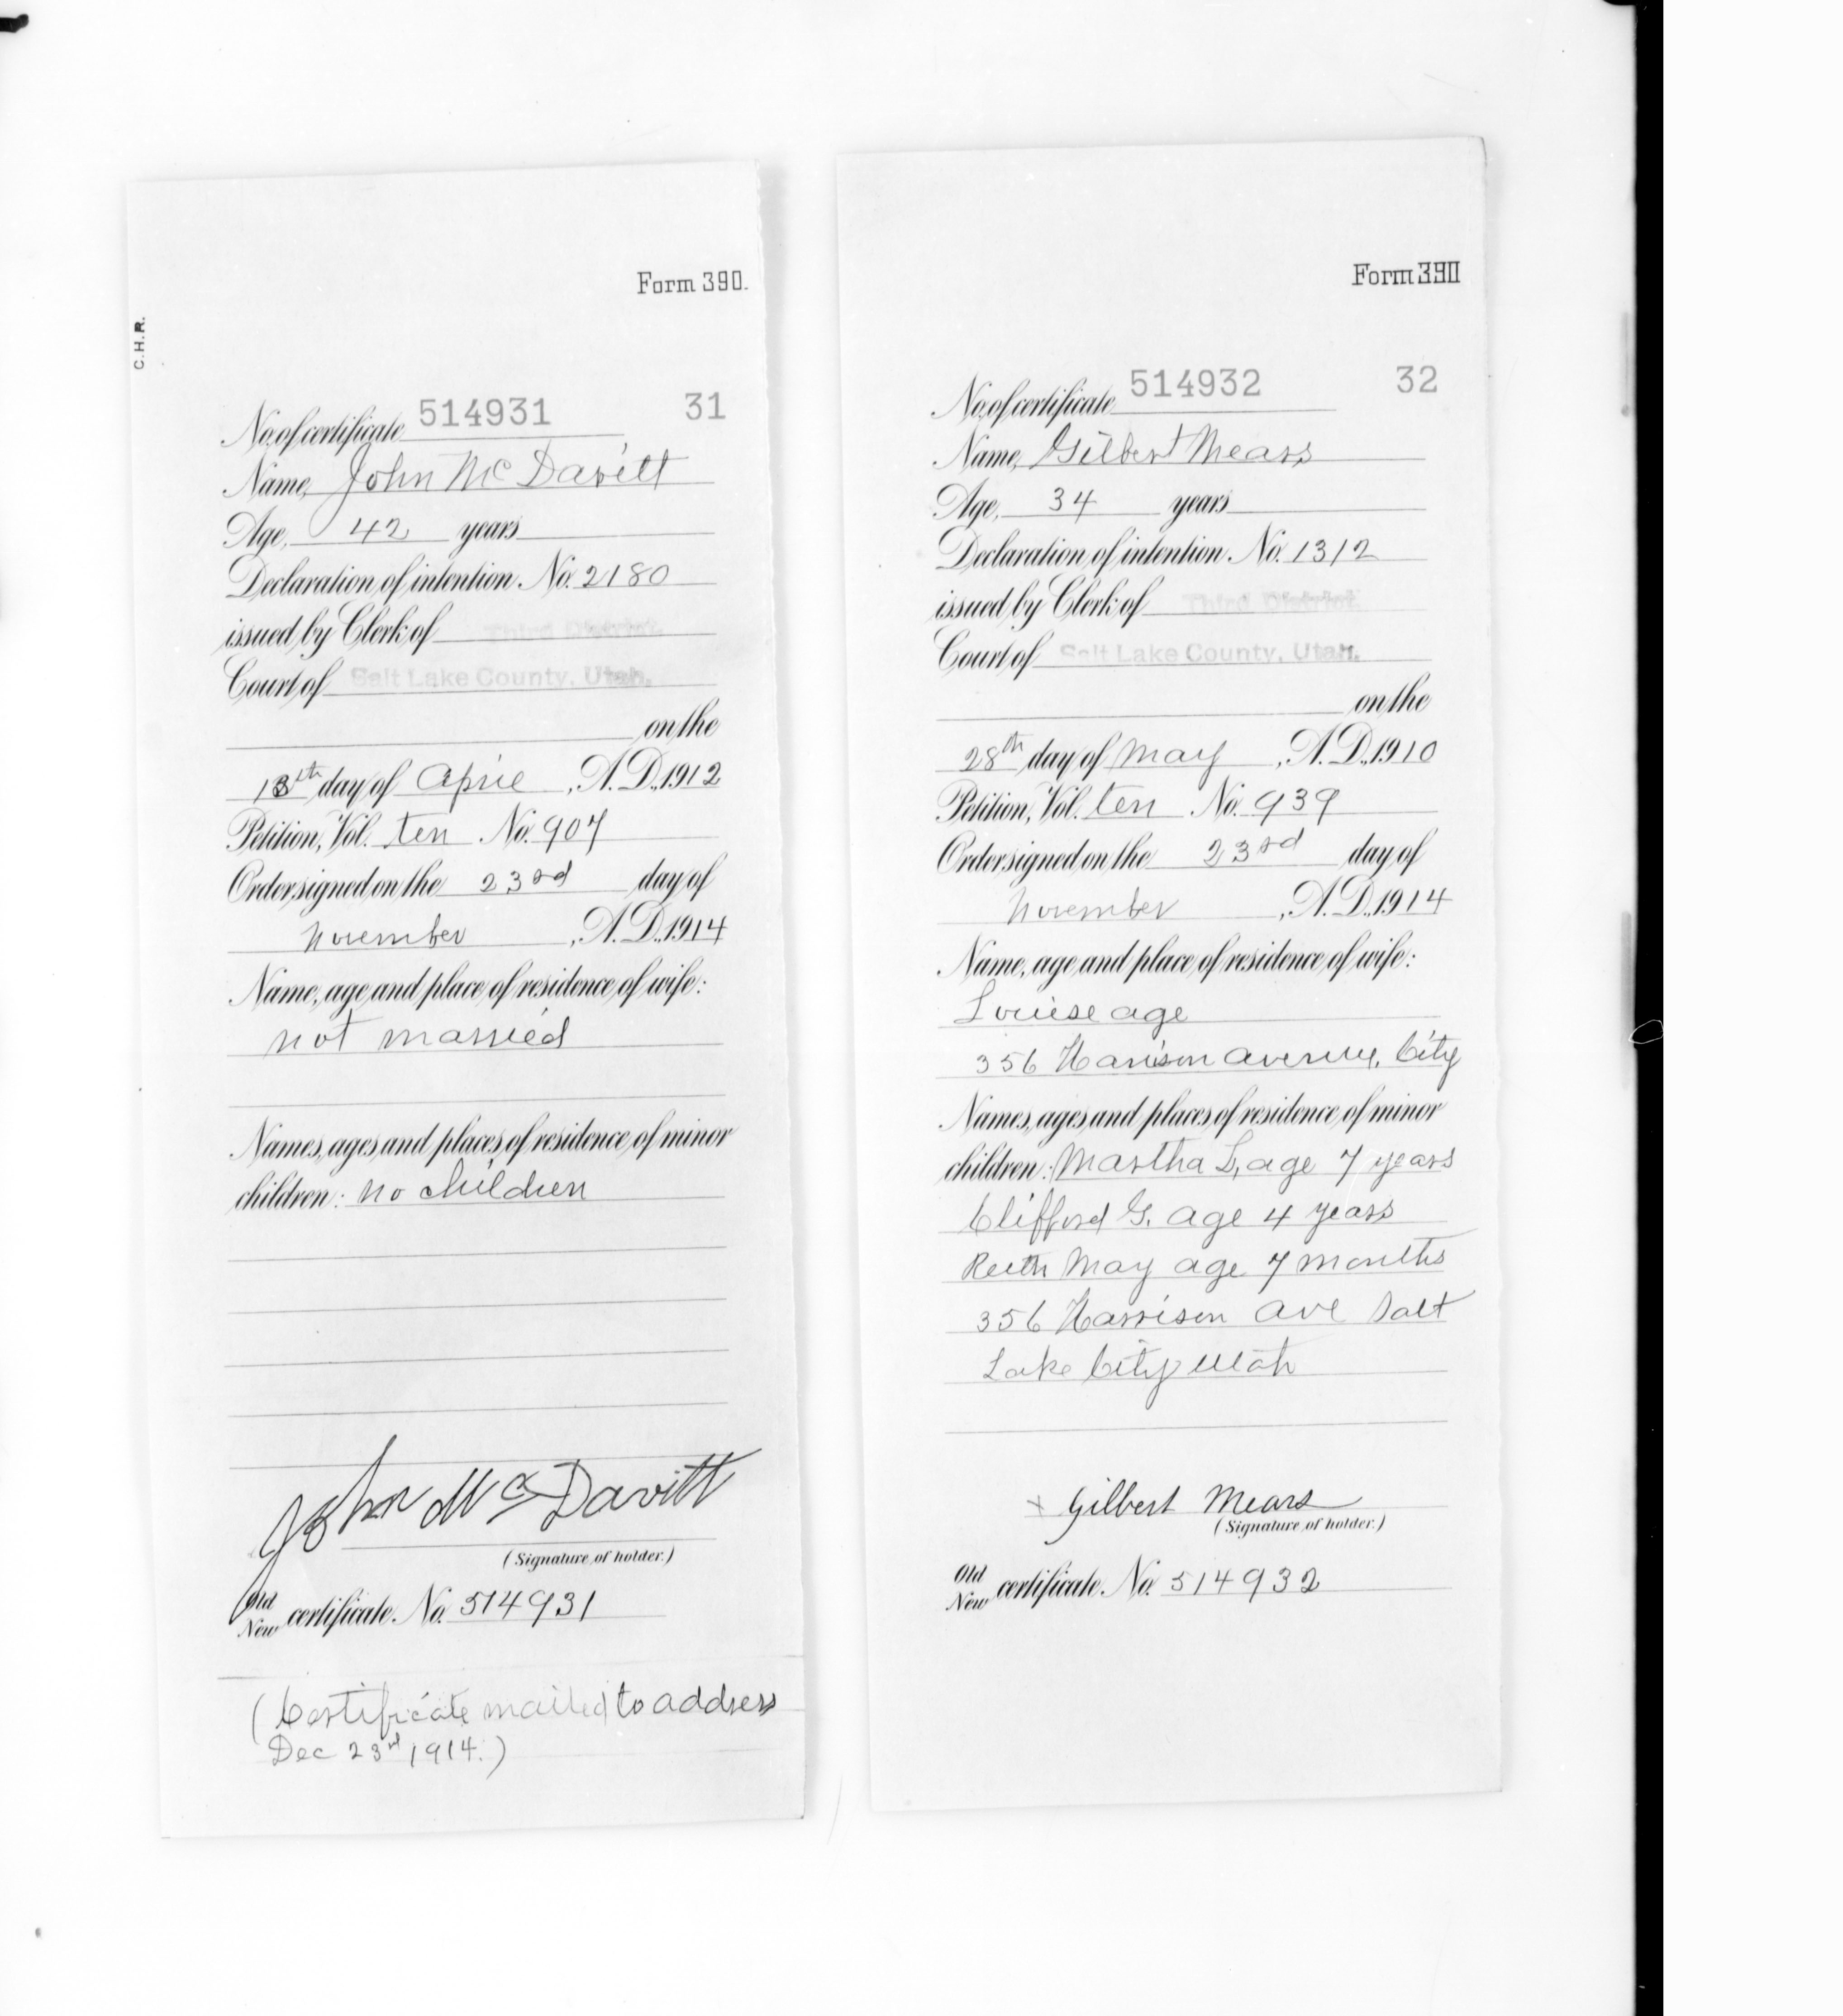 C.H.R.
Form 390.
No. of certificate 514931 31
Name, John McDavitt
Age, 42 years
Declaration of intention. No. 2180
issued by Clerk of Third District.
Court of Salt Lake County, Utah.
on the
13th day of April, A. D., 1912
Petition, Vol. ten No. 907
Order signed on the 23rd day of
November, A. D., 1914
Name, age and place of residence of wife:
not married
Names, ages and places of residence of minor
children: no children
John McDavitt
(Signature of holder.)
Old
New certificate. No. 514931
(Certificate mailed to address
Dec 23rd 1914.)
Form 390
No. of certificate 514932 32
Name, Gilbert Mears
Age, 34 years
Declaration of intention. No. 1312
issued by Clerk of Third District.
Court of Salt Lake County, Utah.
on the
28th day of May, A. D., 1910
Petition, Vol. ten No. 939
Order signed on the 23rd day of
November, A. D., 1914
Name, age and place of residence of wife:
Louise age
356 Harrison avenue, City
Names, ages and places of residence of minor
children: Martha L, age 7 years
Clifford G. age 4 years
Ruth May age 7 months
356 Harrison Ave Salt
Lake City Utah
x Gilbert Mears
(Signature of holder.)
Old
New certificate. No. 514932